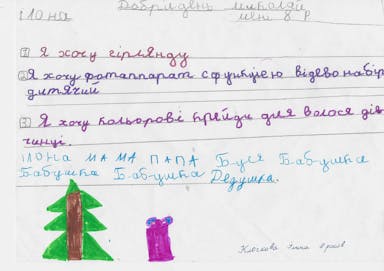 Добрий день миколай
Ілона мені 8 р
1) Я хочу гірлянду
2) Я хочу фотаппарат с функцією відево набір
дитячий
3) Я хочу кольорові крейди для волося дів
чинці.
Ілона МАМА ПАПА Буся Бабушка
Бабушка Бабушка Дедушка.